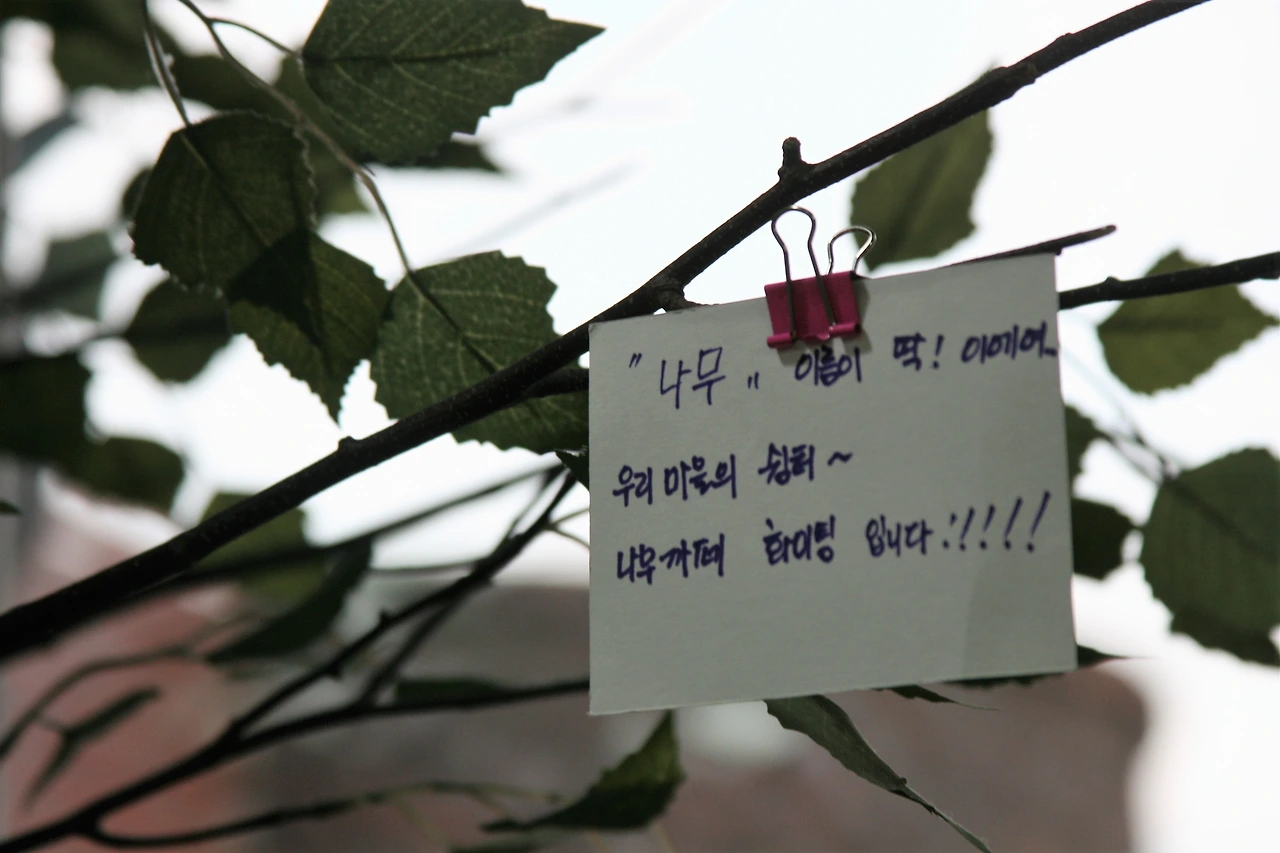 "나무" 이름이 딱! 이에여~
우리 마을의 쉼터~
나무까페 화이팅 입니다!!!!!